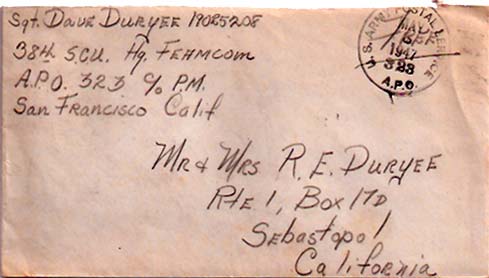 Sgt. Dave Duryee 19025208
38th S.C.U. Hq. FEAMCOM
A.P.O. 323 c/o P.M.
San Francisco Calif
U.S. ARMY POSTAL SERVICE
MAY
1947
323
A.P.O.
Mr & Mrs R. E. Duryee
Rte 1, Box 17D
Sebastopol
California